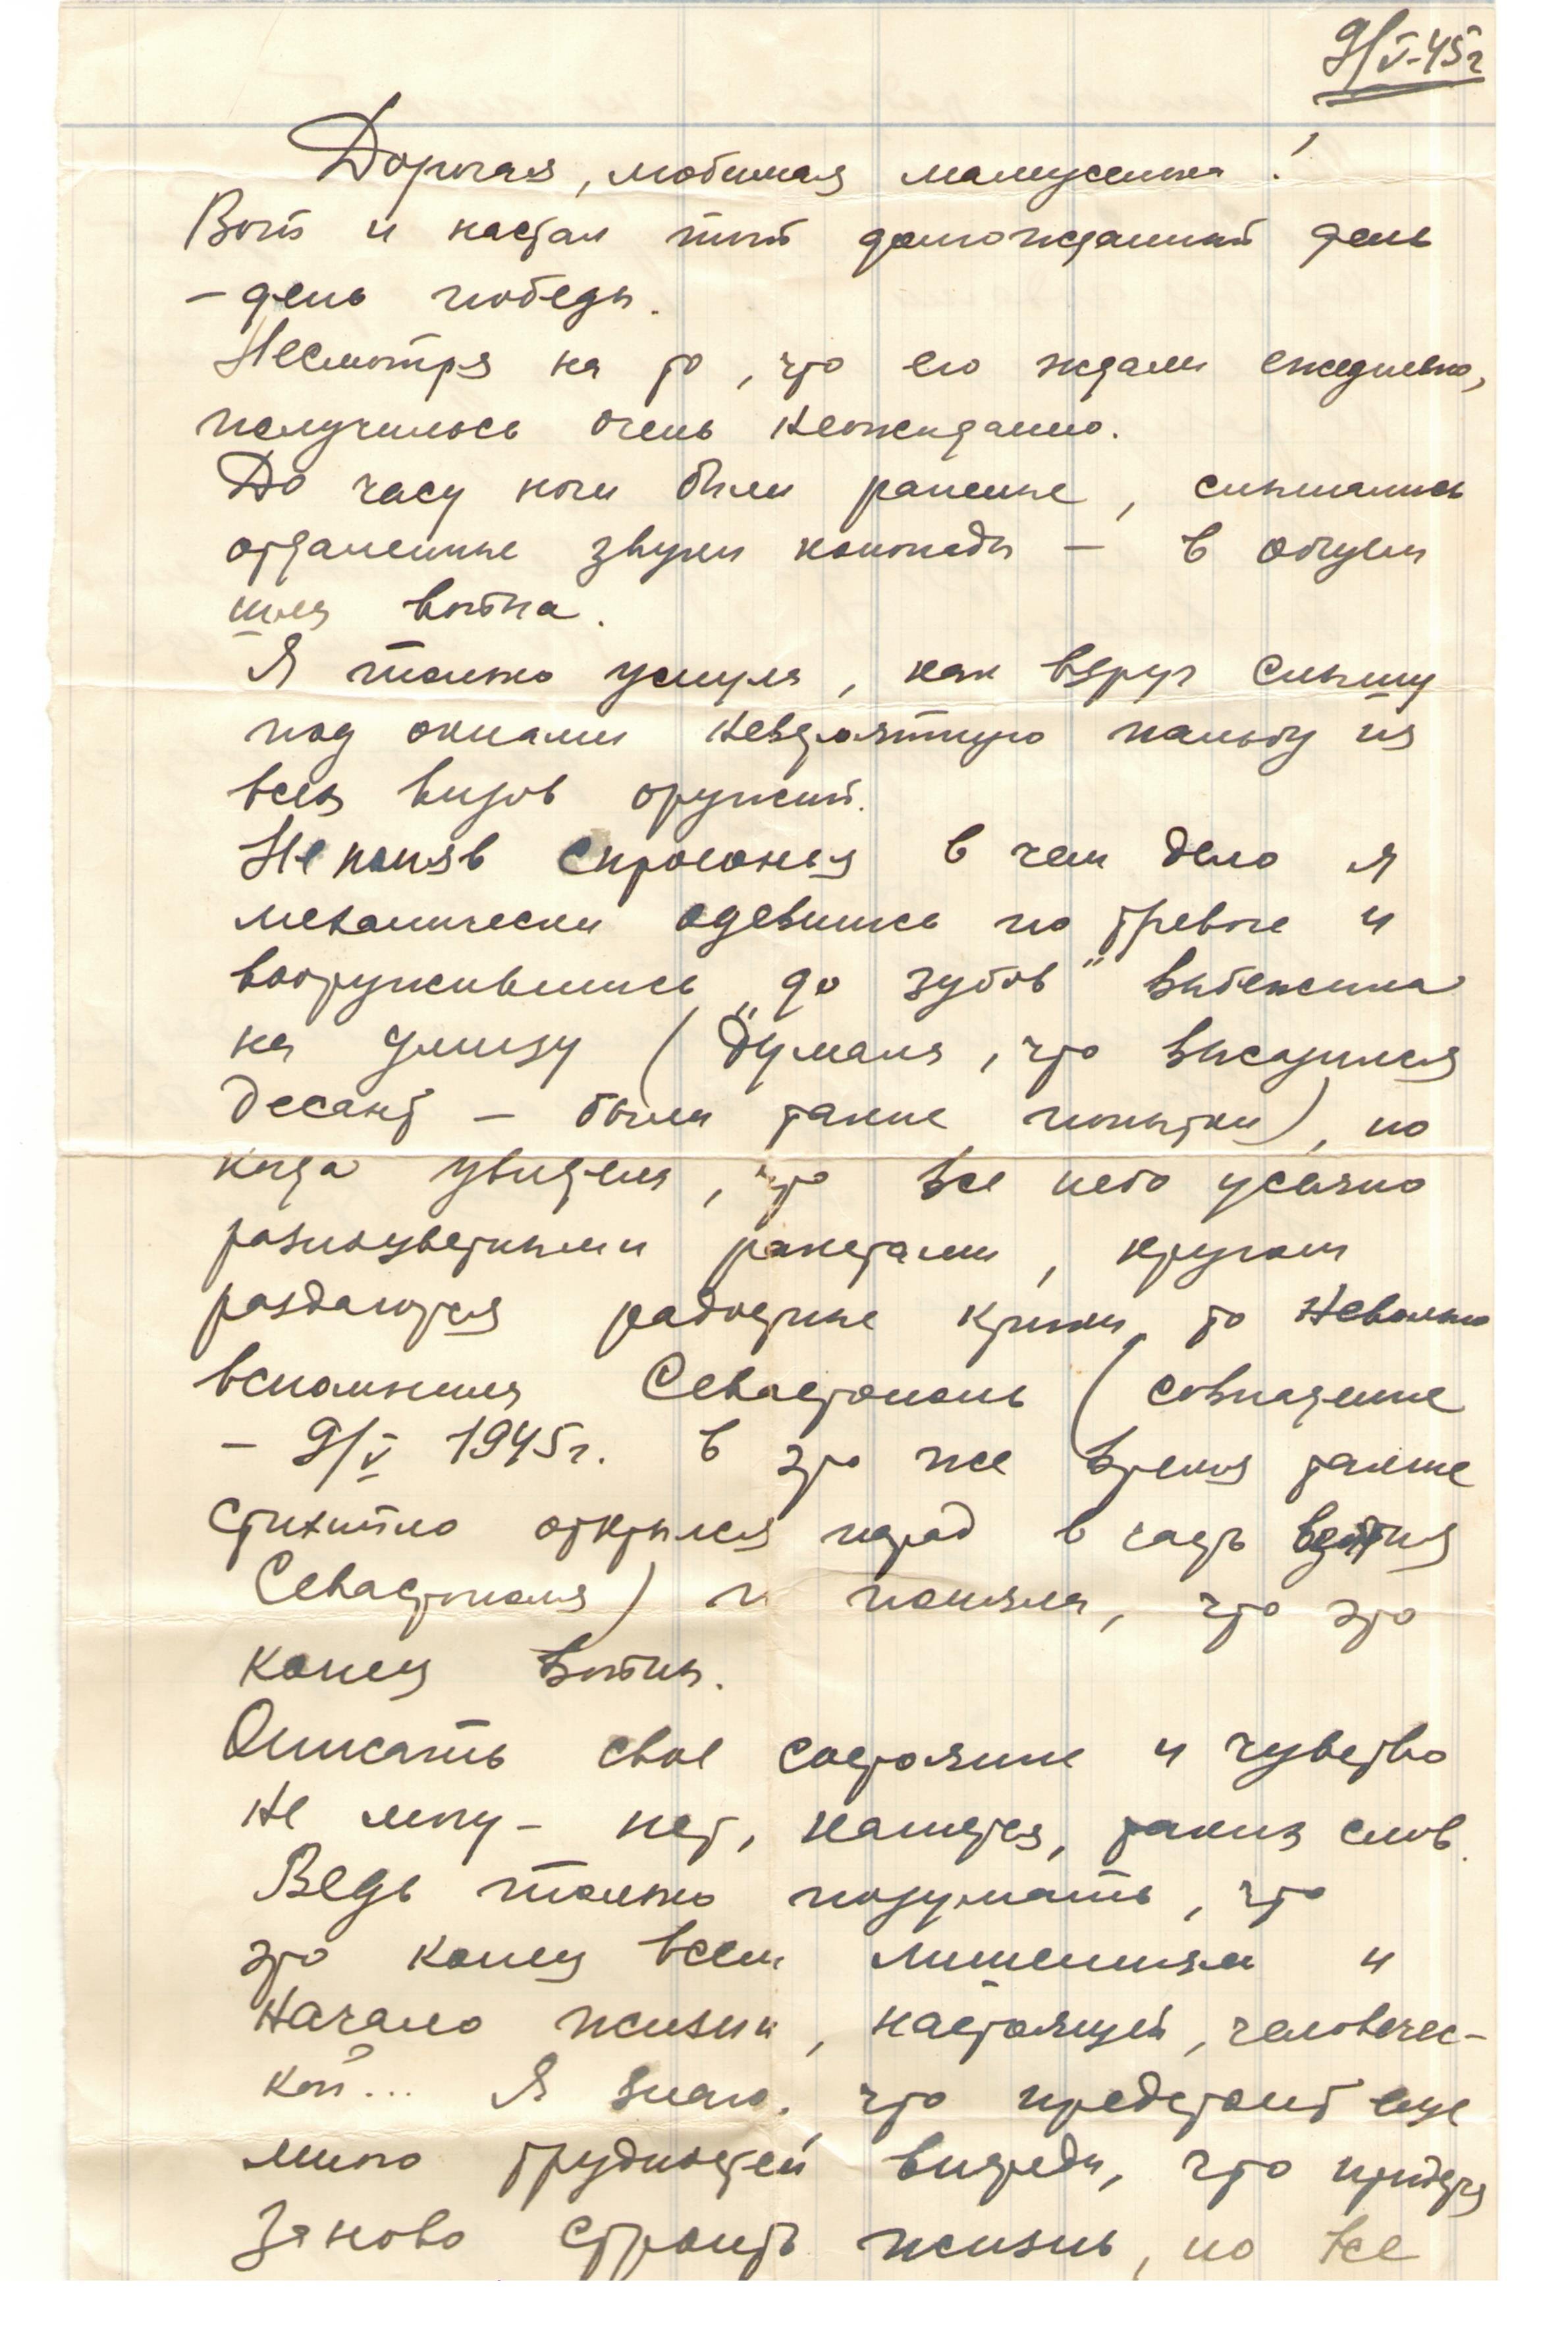 9/V-45г
Дорогая, любимая мамусенька!
Вот и настал тот долгожданный день
– день победы.
Несмотря на то, что его ждали ежедневно,
получилось очень неожиданно.
До часу ночи были раненые, слышались
отдаленные звуки канонады – в общем
шла война.
Я только уснула, как вдруг слышу
под окнами невероятную пальбу из
всех видов оружия.
Не поняв спросонья в чем дело я
механически одевшись по тревоге и
вооружившись „до зубов" выбежала
на улицу (думала, что высадился
десант – были такие попытки), но
когда увидела, что все небо усеяно
разноцветными ракетами, кругом
раздаются радостные крики, то невольно
вспомнила Севастополь (совпадение
– 9/V 1945г. в это же время также
стихийно открылся парад в честь взятия
Севастополя) и поняла, что это
конец войны.
Описать свое состояние и чувство
не могу – нет, кажется, таких слов.
Ведь только подумать, что
это конец всем лишениям и
начало жизни, настоящей, человечес-
кой... Я знаю, что предстоит еще
много трудностей впереди, что придется
заново строить жизнь, но все